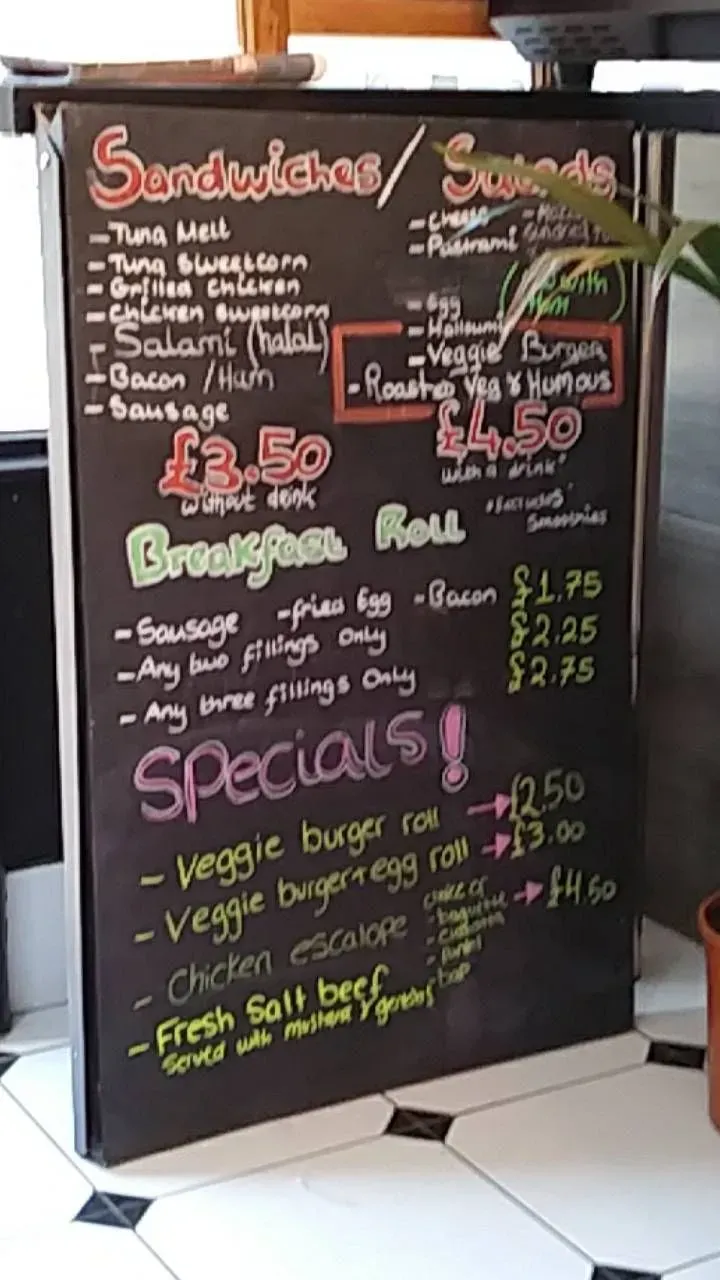 Sandwiches / Salads
- Tuna Melt
- Tuna Sweetcorn
- Grilled Chicken
- Chicken Sweetcorn
- Salami (halal)
- Bacon / Ham
- Sausage
£3.50
without drink
- Cheese
- Pastrami
with
Ham
- Egg
- Halloumi
- Veggie Burger
- Roasted Veg & Humous
£4.50
with a drink*
Smoothies
Breakfast Roll
- Sausage - fried Egg - Bacon £1.75
- Any two fillings Only £2.25
- Any three fillings Only £2.75
Specials!
- Veggie burger roll → £2.50
- Veggie burger + egg roll → £3.00
- Chicken escalope → £4.50
- baguette
- bap
- Fresh Salt beef
Served with Mustard & gerkins